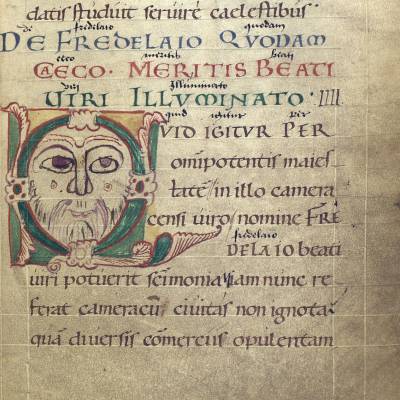 datis studuit servire caelestibus.
de fredelaio quodam
DE FREDELAIO QVODAM
ceco meritis beati
CAECO. MERITIS BEATI
viri Illuminato
VIRI ILLVMINATO. IIII
quid igitur per
QVID IGITVR PER
omipotentis maies
tate in illo camera
censi viro nomine FRE
fredelaio
DELAIO beati
viri potuerit iam nunc re
ferat cameracū civitas non ignota
quā diversis cōmerciis opulentam